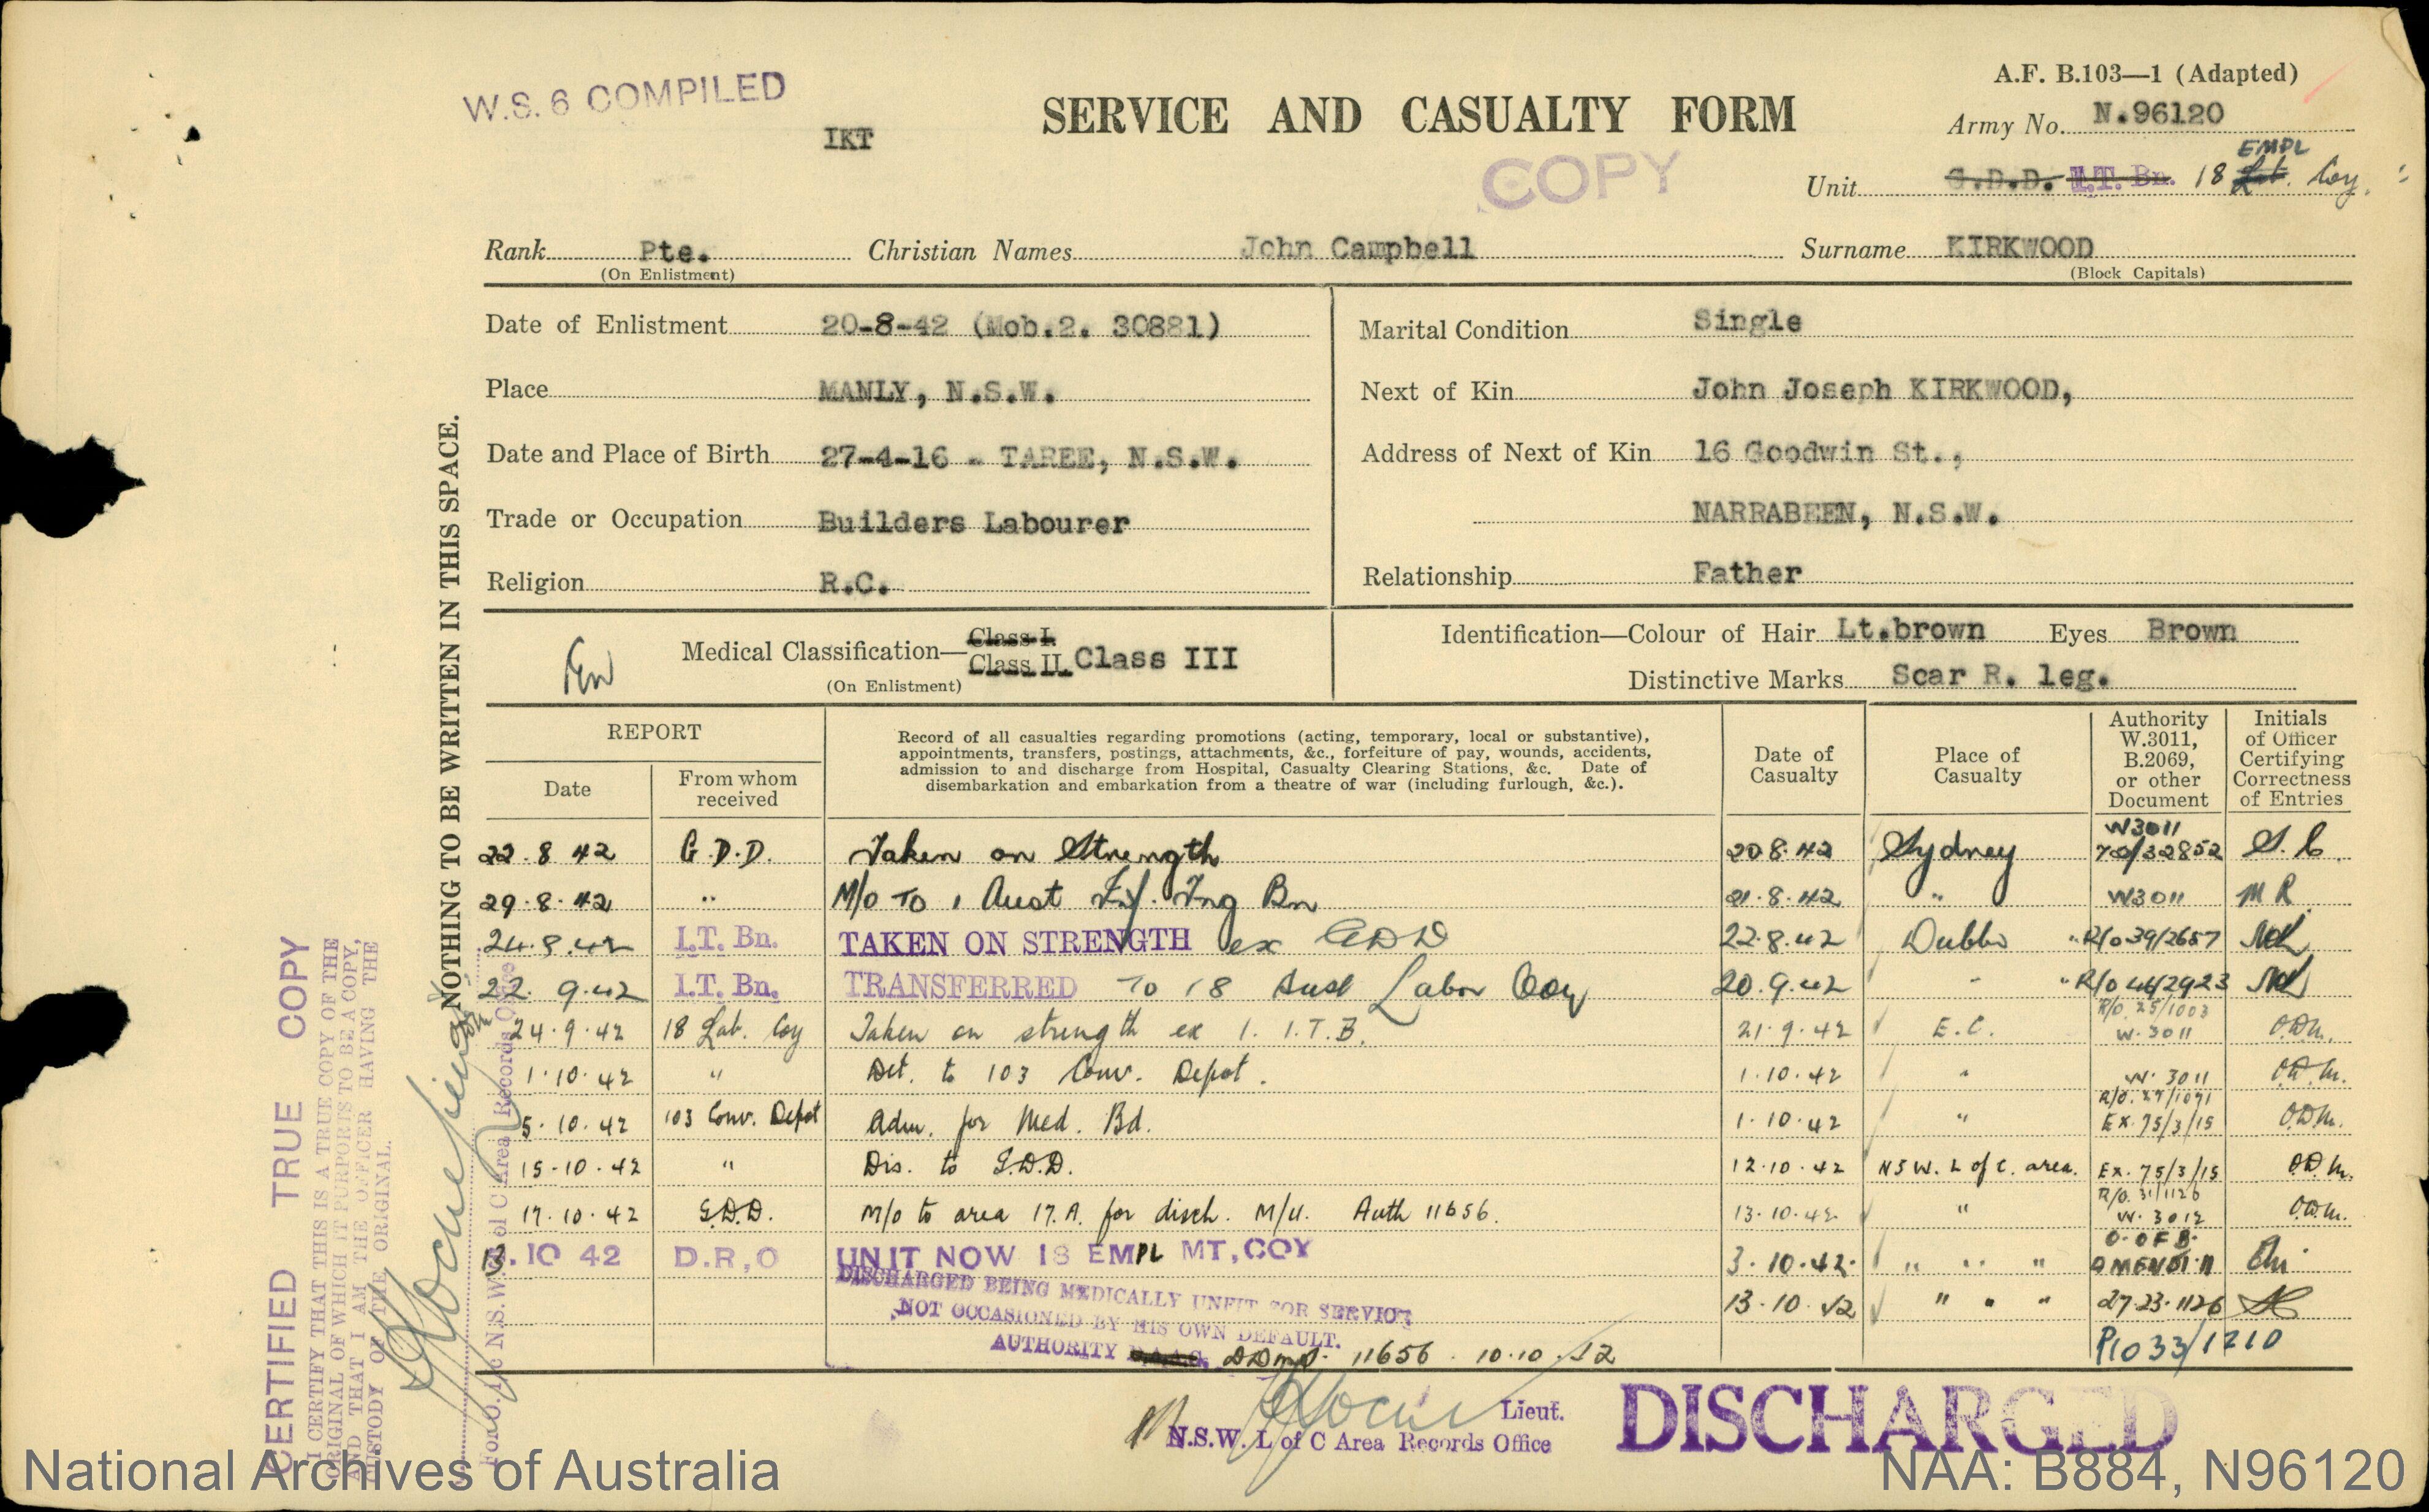 W.S. 6 COMPILED
IKT
SERVICE AND CASUALTY FORM
COPY
A.F. B.103—1 (Adapted)
Army No. N.96120
Unit G.D.D. I.T. Bn. 18 Lab. EMPL Coy.
Rank Pte. Christian Names John Campbell Surname KIRKWOOD
(On Enlistment) (Block Capitals)
Date of Enlistment 20-8-42 (Mob.2. 30881)
Place MANLY, N.S.W.
Date and Place of Birth 27-4-16 - TAREE, N.S.W.
Trade or Occupation Builders Labourer
Religion R.C.
Marital Condition Single
Next of Kin John Joseph KIRKWOOD,
Address of Next of Kin 16 Goodwin St.,
NARRABEEN, N.S.W.
Relationship Father
Medical Classification— Class I. Class II. Class III
(On Enlistment)
Identification—Colour of Hair Lt.brown Eyes Brown
Distinctive Marks Scar R. leg.
NOTHING TO BE WRITTEN IN THIS SPACE.
REPORT
Date
From whom received
Record of all casualties regarding promotions (acting, temporary, local or substantive),
appointments, transfers, postings, attachments, &c., forfeiture of pay, wounds, accidents,
admission to and discharge from Hospital, Casualty Clearing Stations, &c. Date of
disembarkation and embarkation from a theatre of war (including furlough, &c.).
Date of Casualty
Place of Casualty
Authority W.3011, B.2069, or other Document
Initials of Officer Certifying Correctness of Entries
22.8 42 G.D.D. Taken on Strength 20.8.42 Sydney W3011 70/32852 S.C.
29.8.42 " M/O TO 1 Aust Inf. Tng Bn 21.8.42 " W3011 M R.
24.8.42 I.T. Bn. TAKEN ON STRENGTH ex GDD 22.8.42 Dubbo R/o 39/2657
22. 9.42 I.T. Bn. TRANSFERRED To 18 Aust Labor Coy 20.9.42 " R/o 44/2923
24.9.42 18 Lab. Coy Taken on strength ex 1. I.T.B. 21.9.42 E.C. R/O. 25/1003 W.3011 O.D.M.
1.10.42 " Det. to 103 Conv. Depot. 1.10.42 " W.3011 O.D.M.
5.10.42 103 Conv. Depot Adm. for Med. Bd. 1.10.42 " R/O. 27/1071 Ex.75/3/15 O.D.M.
15.10.42 " Dis. to G.D.D. 12.10.42 NSW. L of C. area. Ex.75/3/15 O.D.M.
17.10.42 G.D.D. M/O to area 17.A. for disch. M/U. Auth 11656. 13.10.42 " R/O. 31/1126 W.3012 O.D.M.
13.10 42 D.R,O UNIT NOW 18 EMPL MT, COY 3.10.42. " " " O.OFB. AMENDT.11
DISCHARGED BEING MEDICALLY UNFIT FOR SERVICE 13.10.42 " " " 27.23.1126
NOT OCCASIONED BY HIS OWN DEFAULT.
AUTHORITY 11656 . 10.10.42 P1033/1210
Lieut.
N.S.W. L of C Area Records Office
DISCHARGED
CERTIFIED TRUE COPY
I CERTIFY THAT THIS IS A TRUE COPY OF THE
ORIGINAL OF WHICH IT PURPORTS TO BE A COPY,
AND THAT I AM THE OFFICER HAVING THE
CUSTODY OF THE ORIGINAL.
For O. i/c N.S.W. L of C Area Records Office
National Archives of Australia
NAA: B884, N96120